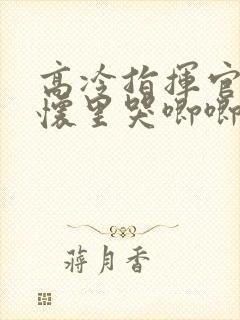 高冷指揮官
懷里哭唧唧
蔣月香